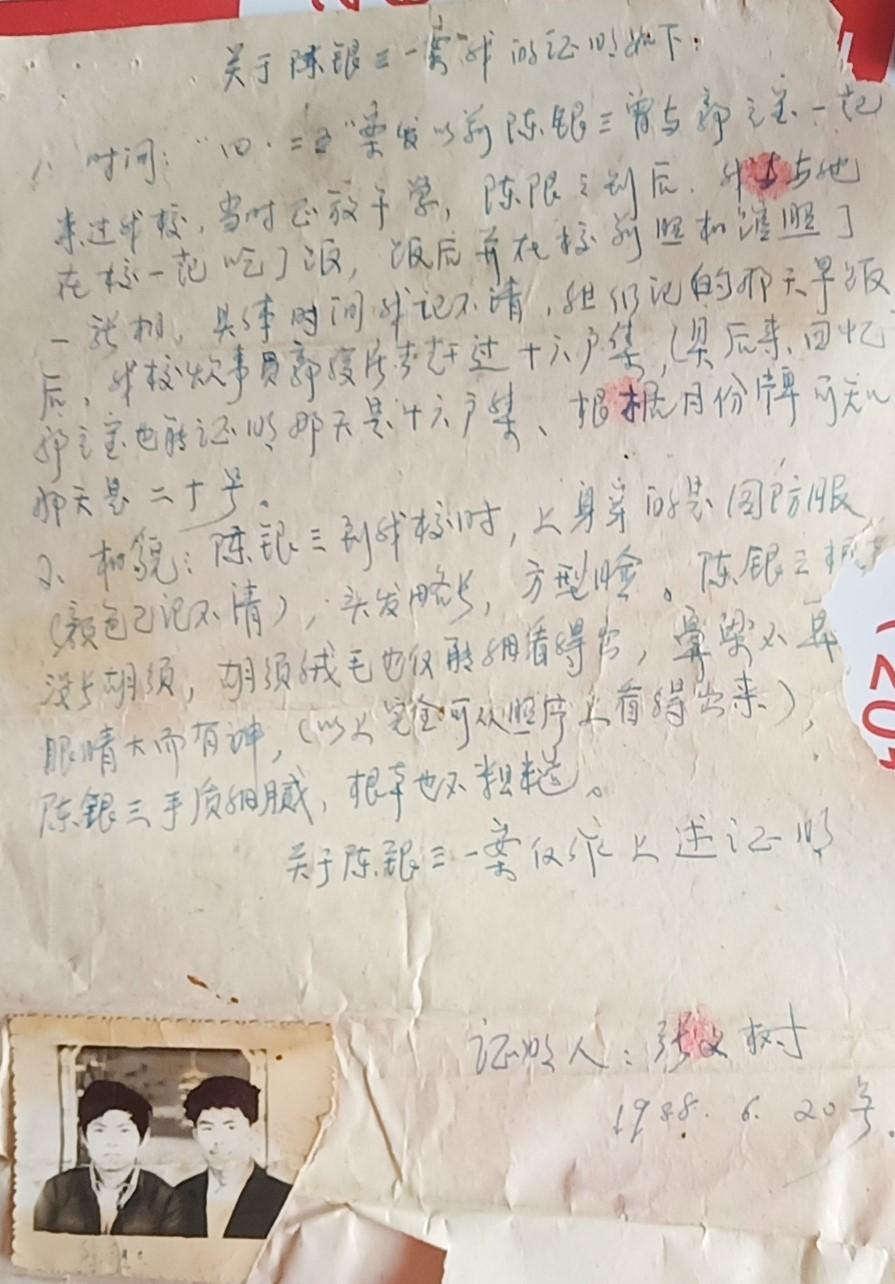 关于陈银三一案我的证明如下:
1、时间:"四·二五"案发以前陈银三曾与郭之宝一起
来过我校,当时正放午学,陈银三到后,我与他
在校一起吃了饭,饭后并在校前照相馆照了
一张相,具体时间我记不清,但仍记的那天早饭
后,我校炊事员郭 赶过十六户集,(果后来回忆
郭之宝也能证明那天是十六户集、根据月份牌可知
那天是二十号。
2、相貌:陈银三到我校时,上身穿的是国防服
(颜色已记不清),头发略长,方型脸。陈银三
没长胡须,胡须绒毛也仅能细看得出,鼻梁不
眼睛大而有神,(以上完全可从照片上看得出来),
陈银三手质细腻,根本也不粗糙。
关于陈银三一案仅作上述证明
证明人:张文树
1988.6.20号.
120